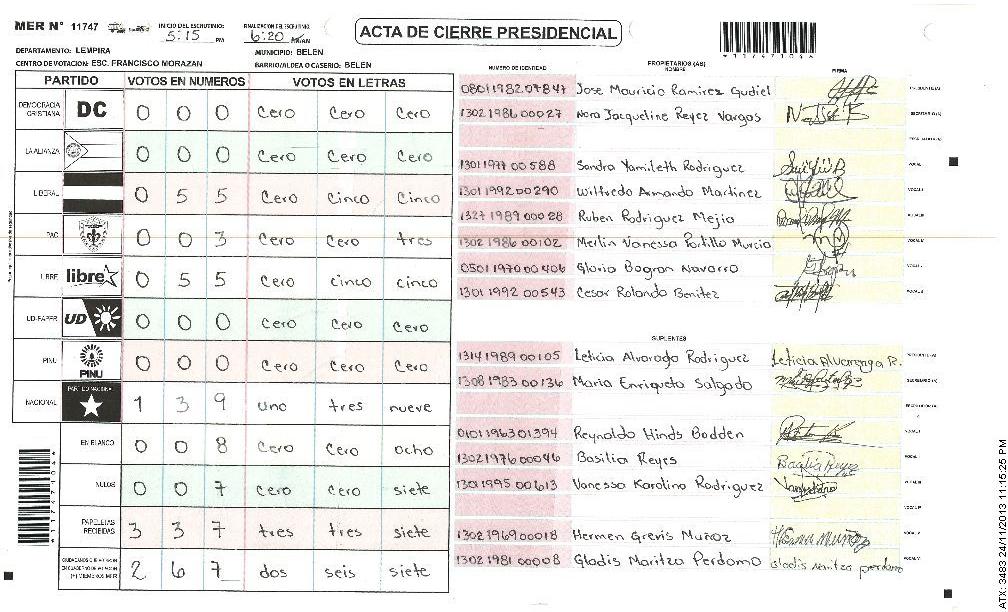 MER N° 11747 INICIO DEL ESCRUTINIO: 5:15 PM FINALIZACION DEL ESCRUTINIO: 6:20
ACTA DE CIERRE PRESIDENCIAL
*117471046*
DEPARTAMENTO: LEMPIRA MUNICIPIO: BELEN
CENTRO DE VOTACION: ESC. FRANCISCO MORAZAN BARRIO/ALDEA O CASERIO: BELEN
PARTIDO VOTOS EN NUMEROS VOTOS EN LETRAS
DEMOCRACIA CRISTIANA DC 0 0 0 Cero Cero Cero
LA ALIANZA 0 0 0 Cero Cero Cero
LIBERAL 0 5 5 Cero Cinco Cinco
PAC 0 0 3 Cero Cero tres
LIBRE libre 0 5 5 Cero cinco cinco
UD-FAPER UD 0 0 0 Cero Cero Cero
PINU PINU 0 0 0 Cero Cero Cero
NACIONAL PARTIDO NACIONAL 1 3 9 uno tres nueve
EN BLANCO 0 0 8 Cero Cero ocho
NULOS 0 0 7 Cero Cero siete
PAPELETAS RECIBIDAS 3 3 7 tres tres siete
2 6 7 dos seis siete
*117471046*
NUMERO DE IDENTIDAD PROPIETARIOS (AS) NOMBRE FIRMA
0801198207847 Jose Mauricio Ramirez Gudiel PRESIDENTE(A)
1302198600027 Nora Jacqueline Reyez Vargos SECRETARIO(A)
ESCRUTADOR(A)
1301197700588 Sandra Yamileth Rodriguez VOCAL
1301199200290 Wilfredo Armando Martinez
1327198900028 Ruben Rodriguez Mejia
1302198600102 Merlin Vanessa Portillo Murcia
0501197000406 Gloria Bogran Navarro
1301199200543 Cesar Rolando Benitez
SUPLENTES
1314198900105 Leticia Alvarado Rodriguez Leticia Alvarenga R. PRESIDENTE(A)
1308198300136 Maria Enriqueta Salgado SECRETARIO(A)
ESCRUTADOR(A)
0101196301394 Reynaldo Hinds Bodden
1302197600046 Basilia Reyes Basilia Reyes
1301199500613 Vanessa Karolina Rodriguez
1302196900018 Hermen Grevis Muñoz
1302198100008 Gladis Maritza Perdomo Gladis Maritza perdomo
ATX: 3483 24/11/2013 11:15:25 PM